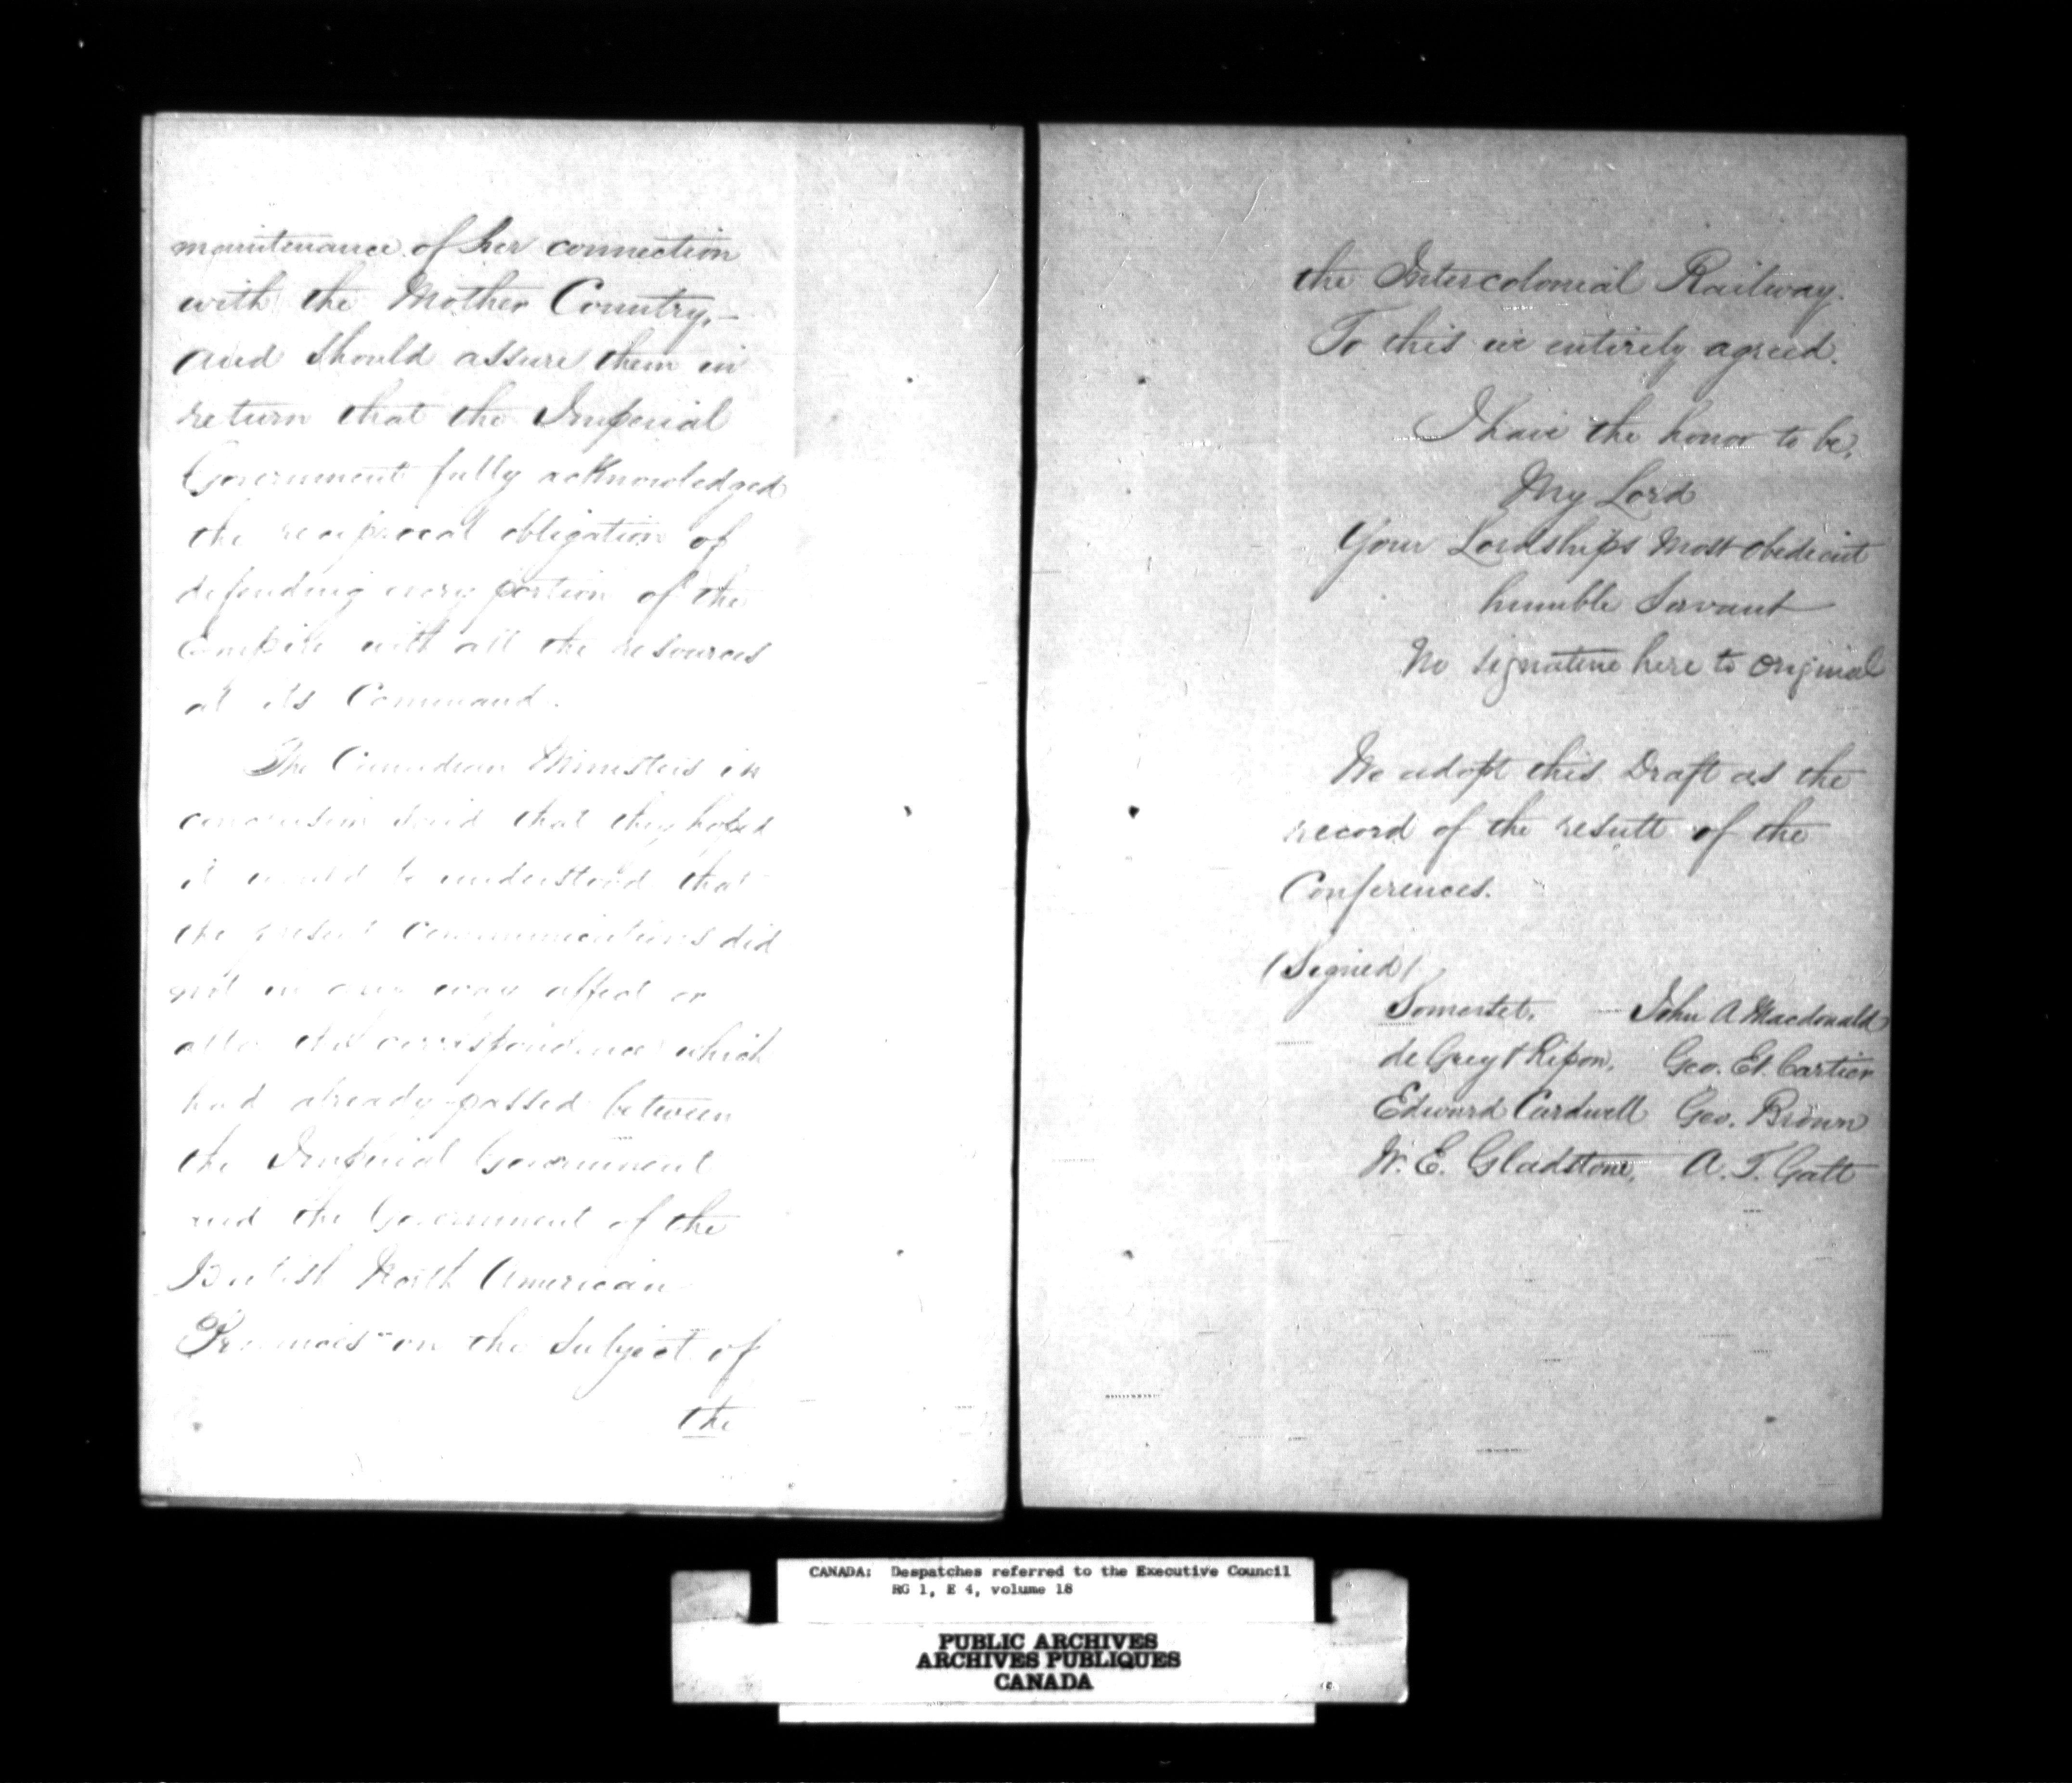 maintenance of her connection
with the Mother Country,—
and should assure them in
return that the Imperial
Government fully acknowledged
the reciprocal obligation of
defending every portion of the
Empire with all the resources
at its Command.
The Canadian Ministers in
conclusion said that they hoped
it would be understood that
the present communications did
not in any way affect or
alter the correspondence which
had already passed between
the Imperial Government
and the Government of the
British North American
Provinces on the Subject of
the
the Intercolonial Railway.
To this we entirely agreed.
I have the honor to be,
My Lord
Your Lordships Most obedient
humble Servant
No signature here to original
We adopt this Draft as the
record of the result of the
Conferences.
(Signed)
Somerset. — John A Macdonald
de Grey & Ripon, Geo. Et. Cartier
Edward Cardwell Geo. Brown
W. E. Gladstone, A. T. Galt
CANADA: Despatches referred to the Executive Council
RG 1, E 4, volume 18
PUBLIC ARCHIVES
ARCHIVES PUBLIQUES
CANADA